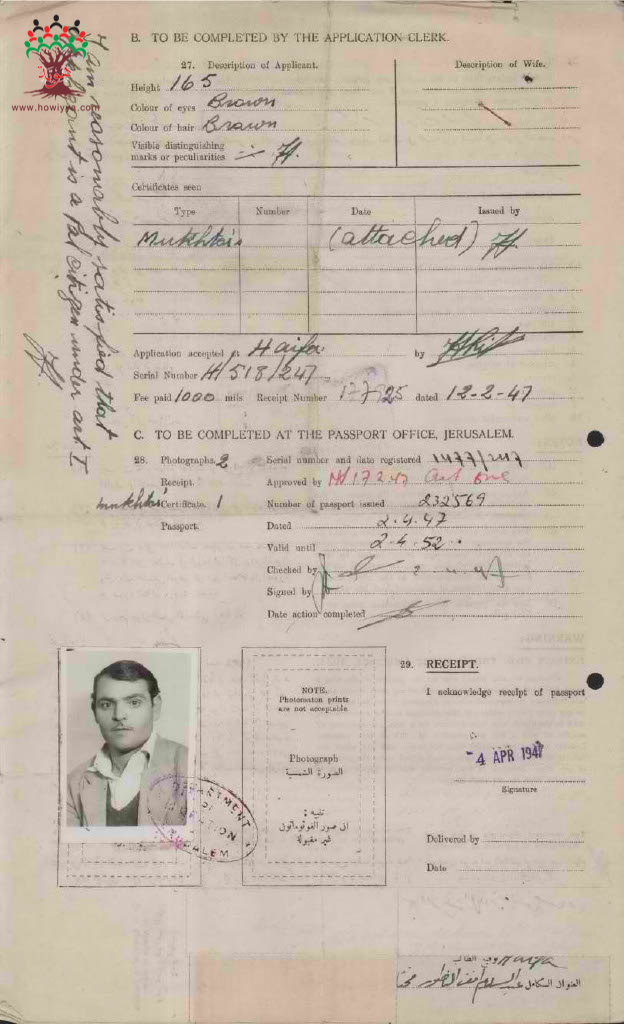 www.howiyya.com
I am reasonably satisfied that
applicant is a Pal Citizen under art I
B. TO BE COMPLETED BY THE APPLICATION CLERK.
27. Description of Applicant.
Description of Wife.
Height 165
Colour of eyes Brown
Colour of hair Brown
Visible distinguishing
marks or peculiarities
Certificates seen
Type Number Date Issued by
Mukhtar's (attached)
Application accepted at Haifa by
Serial Number H/518/247
Fee paid 1000 mils Receipt Number dated 12-2-47
C. TO BE COMPLETED AT THE PASSPORT OFFICE, JERUSALEM.
28. Photographs. 2 Serial number and date registered
Receipt. Approved by
mukhtar's Certificate. 1 Number of passport issued 232569
Passport. Dated 2.4.47
Valid until 2.4.52.
Checked by
Signed by
Date action completed
29. RECEIPT.
I acknowledge receipt of passport
-4 APR 1947
Signature
Delivered by
Date
NOTE.
Photomaton prints
are not acceptable
Photograph
الصورة الشمسية
تنبيه :
ان صور الفوتوماتون
غير مقبولة
DEPARTMENT
OF
JERUSALEM
WARNING:
Haifa
العنوان الكامل